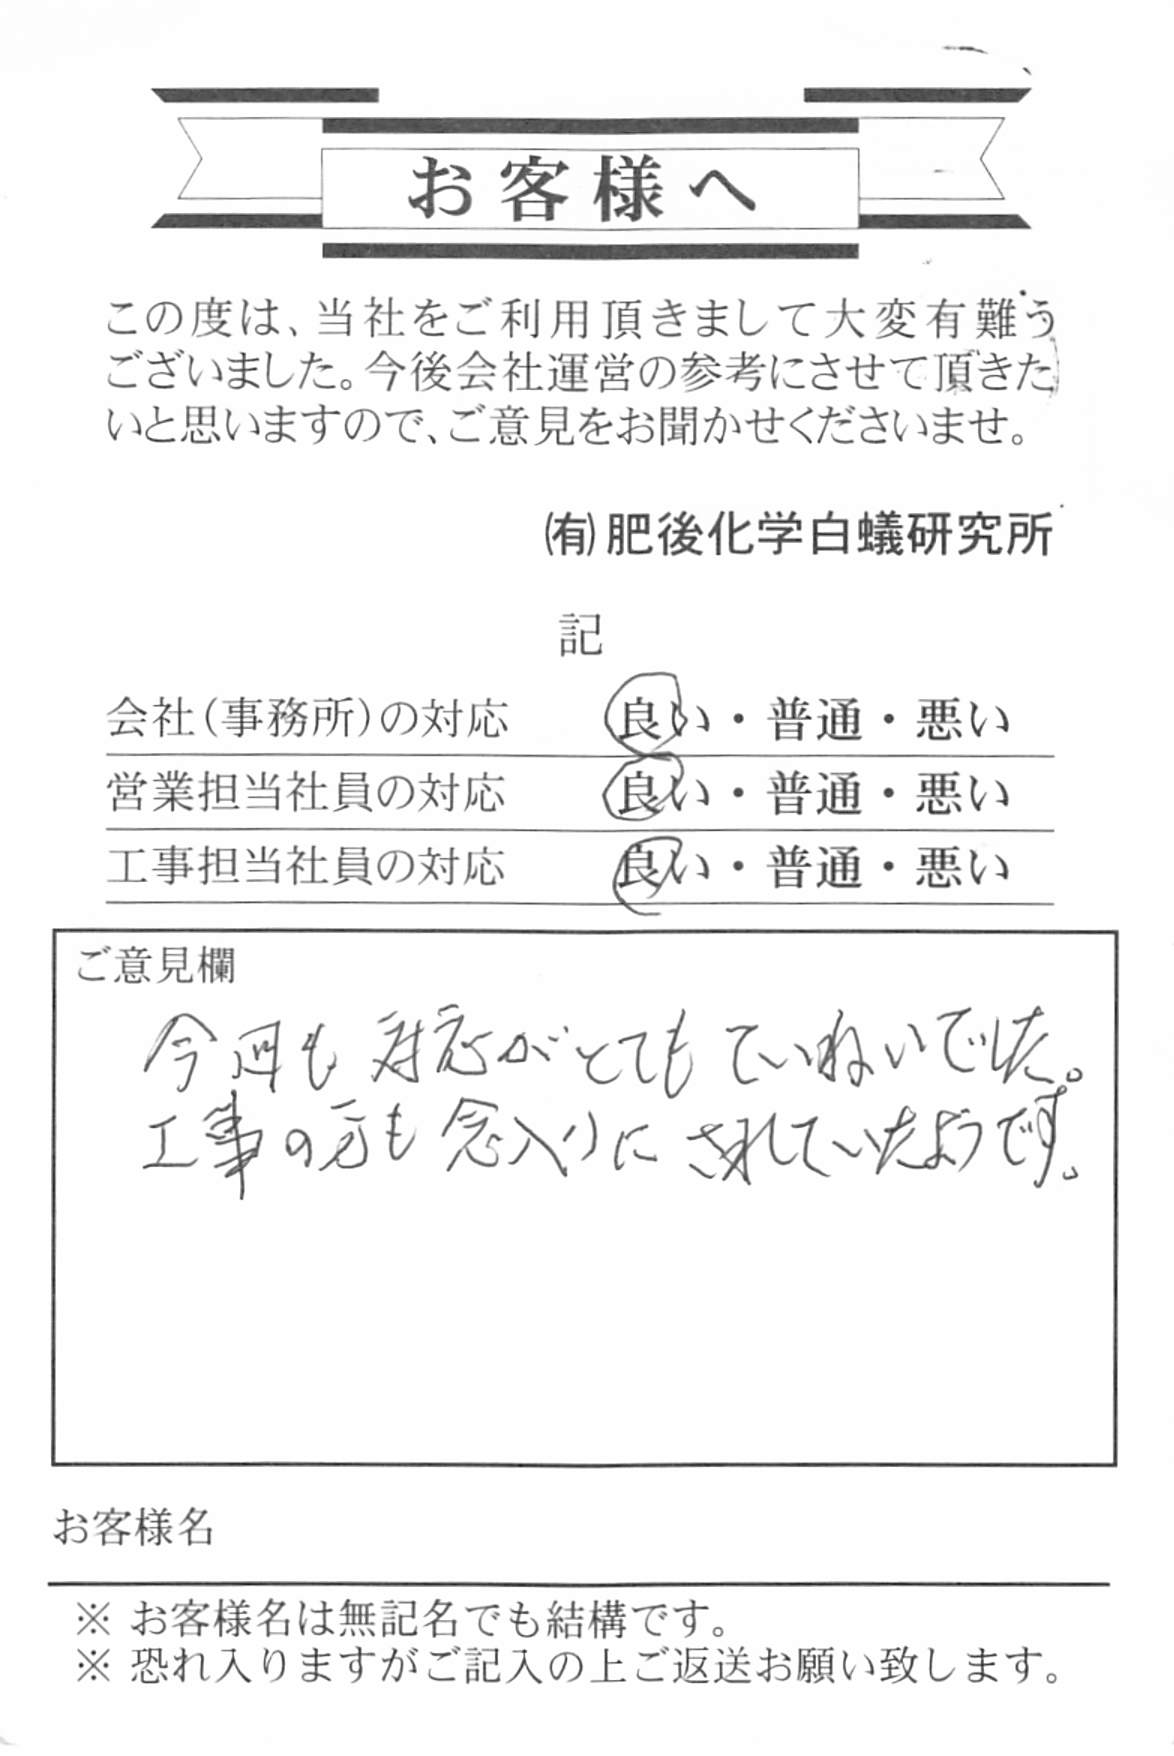 お客様へ
この度は、当社をご利用頂きまして大変有難う
ございました。今後会社運営の参考にさせて頂きた
いと思いますので、ご意見をお聞かせくださいませ。
㈲肥後化学白蟻研究所
記
会社(事務所)の対応 良い・普通・悪い
営業担当社員の対応 良い・普通・悪い
工事担当社員の対応 良い・普通・悪い
ご意見欄
今回も対応がとてもていねいでした。
工事の方も念入りにされていたようです。
お客様名
※ お客様名は無記名でも結構です。
※ 恐れ入りますがご記入の上ご返送お願い致します。